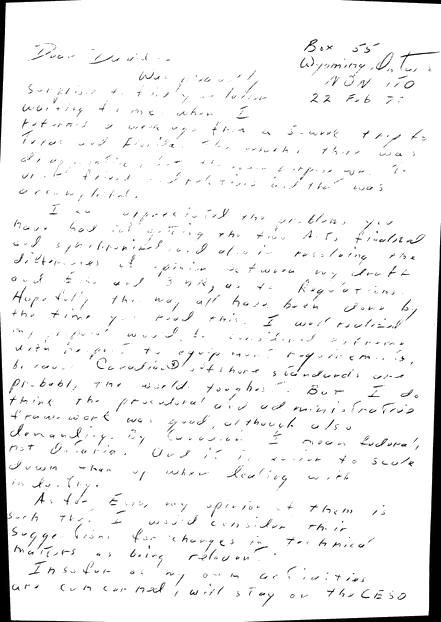 Box 55
Dear David
Wyoming, Ontario
Was pleasantly
N0N 1T0
surprised to find your letter
22 Feb
waiting for me when I
returned a week ago from a 5-week trip to
Texas and Florida. The weather there was
but the main purpose was to
friends and relatives and that was
accomplished.
I appreciated the problems you
have had in getting the two Acts finalized
and synchronized and also in resolving the
differences of opinion between my draft
and and as to Regulations.
Hopefully this may all have been done by
the time you read this. I well realized
my proposal would be considered extreme
with respect to equipment requirements,
because Canadian offshore standards are
probably the world toughest. But I do
think the procedural and administrative
framework was good, although also
demanding. By Canadian I mean federal,
not Ontario. And it is easier to scale
down than up when dealing with
industry.
As for my opinion of them is
such that I would consider their
suggestions for changes in technical
matters as being relevant.
Insofar as my own activities
are concerned, I will stay on the CESO